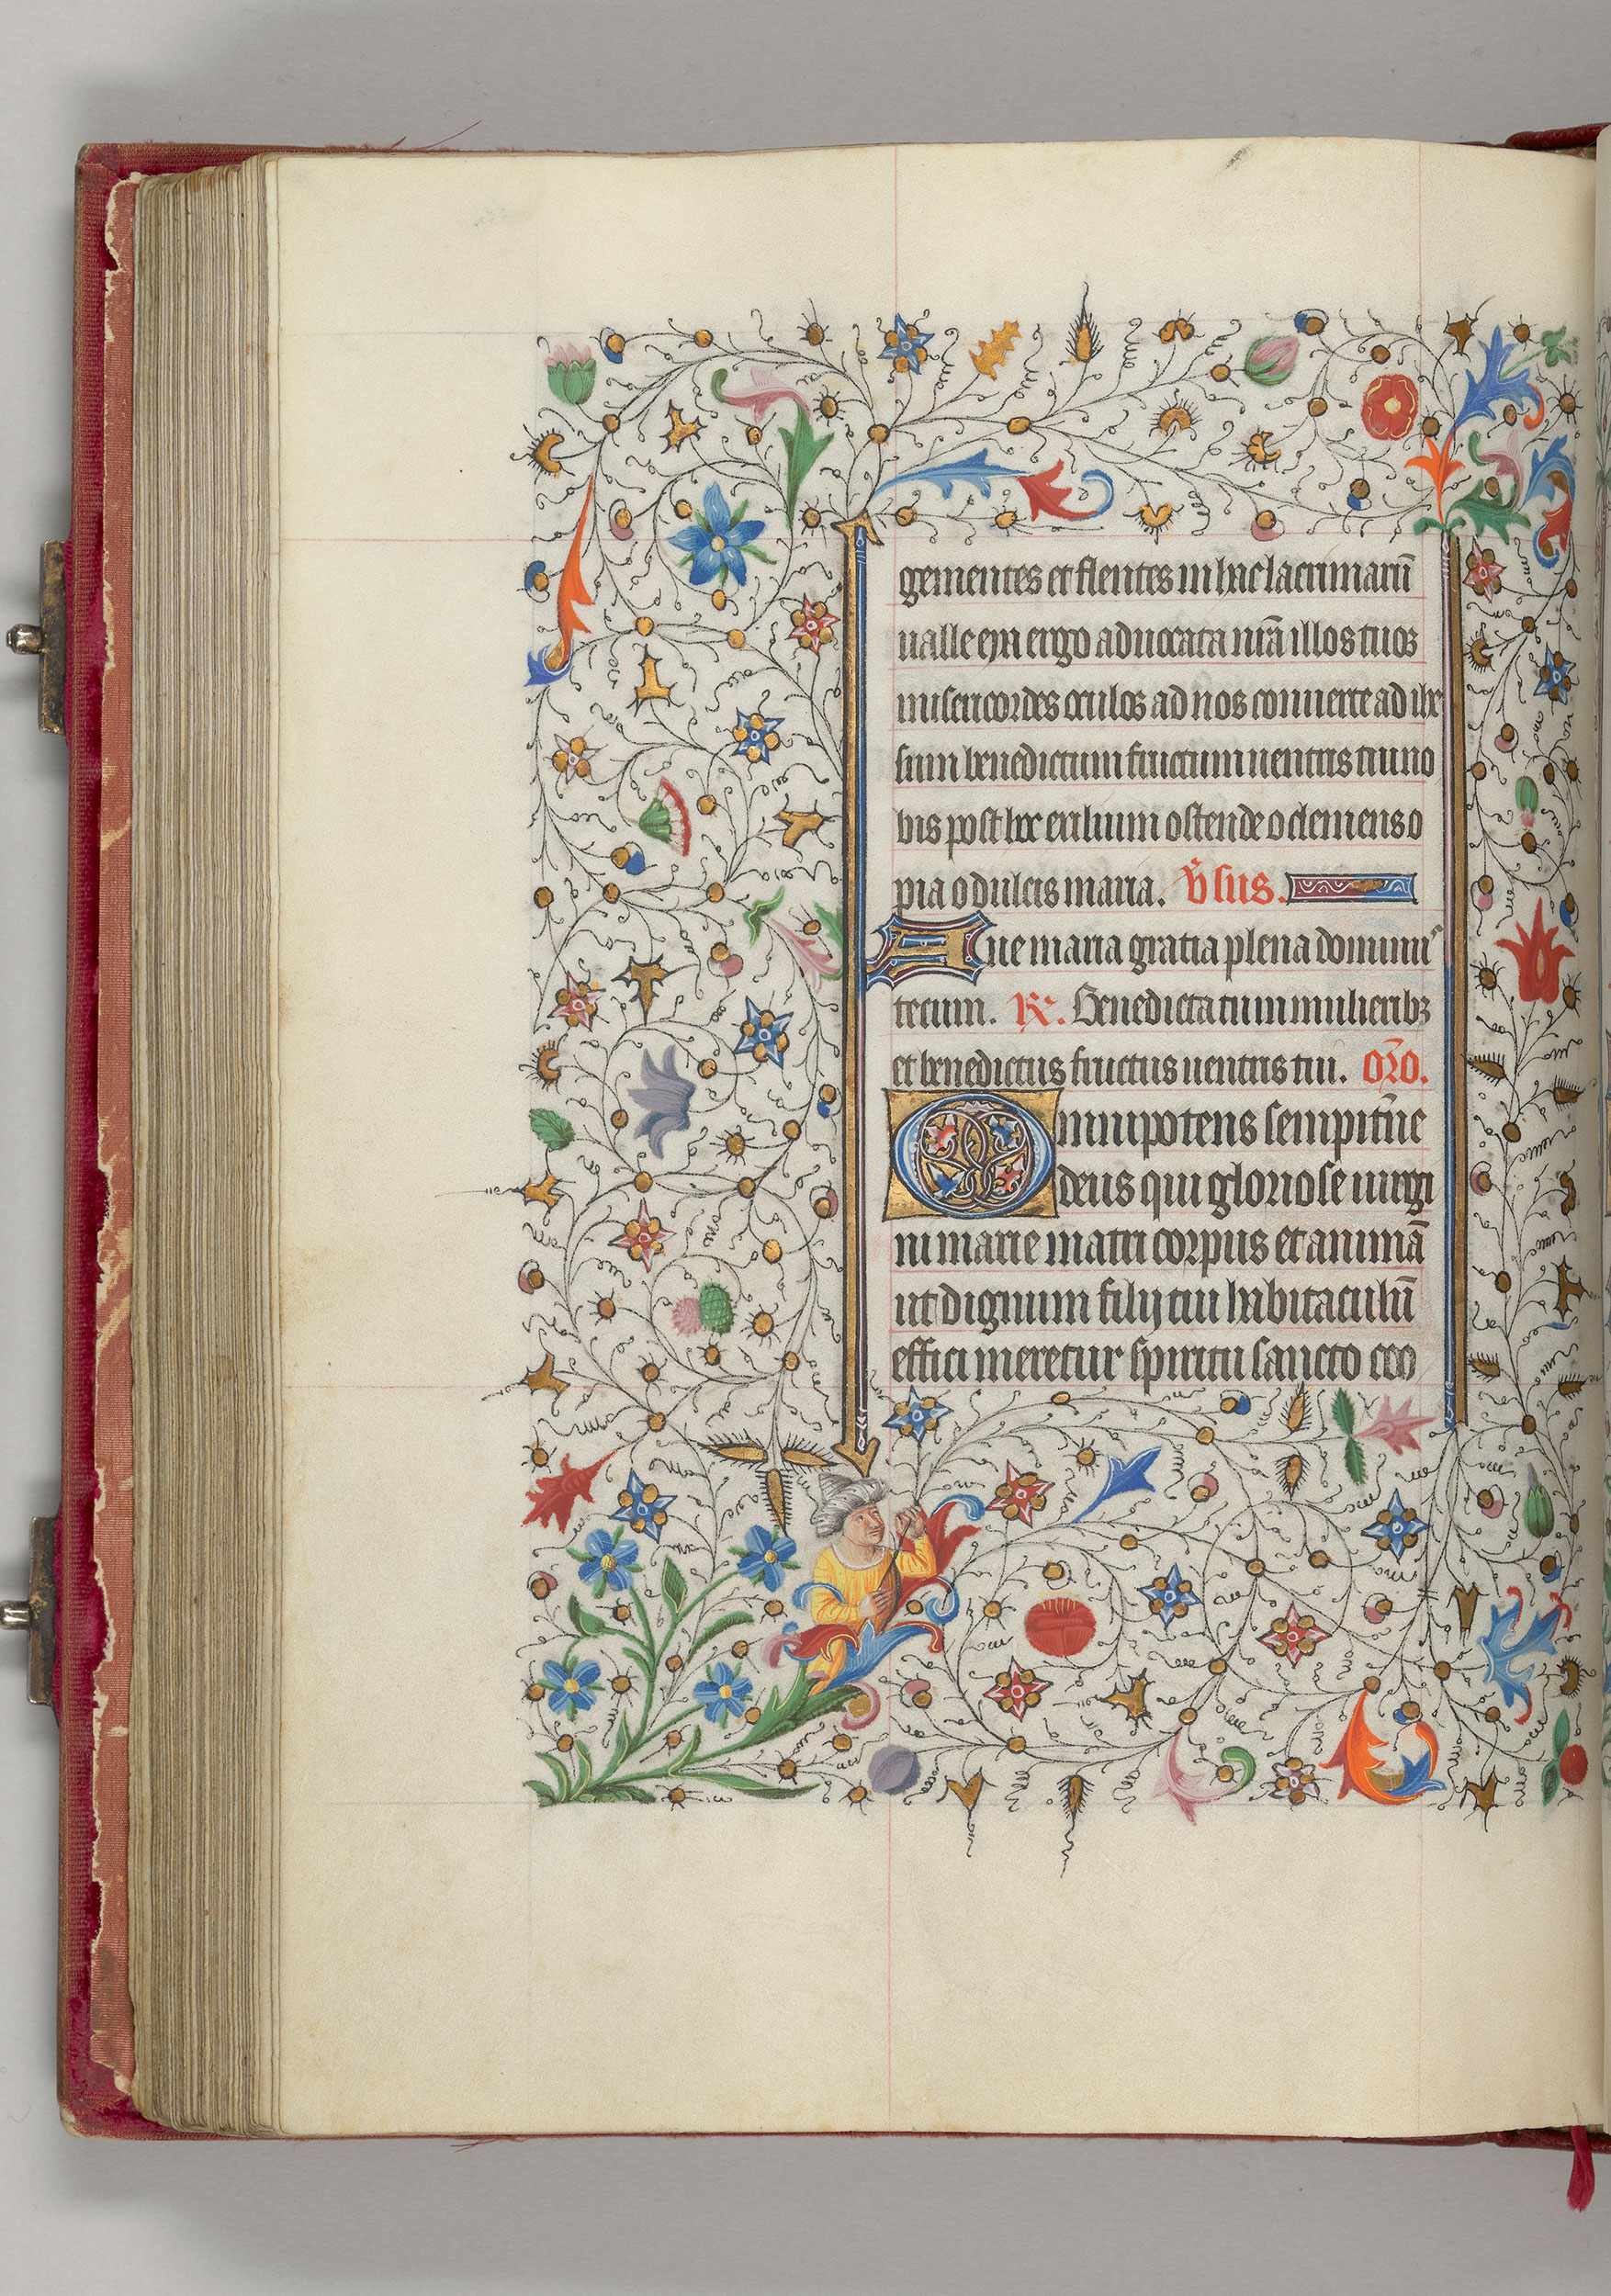 gementes et flentes in hac lacrimarū
ualle eya ergo aduocata nr̄a illos tuos
misericordes oculos ad nos conuerte ad ihe
sum benedictum fructum uentris tui no
bis post hoc exilium ostende o clemens o
pia o dulcis maria. v̄sus.
Aue maria gratia plena dominꝰ
tecum. ℟. Benedicta tu in mulieribꝫ
et benedictus fructus uentris tui. or̄o.
Omnipotens sempit̄ne
deus qui gloriose uirgi
ni marie matri corpus et animā
ut dignum filij tui habitaculū
effici meretur spiritu sancto coo